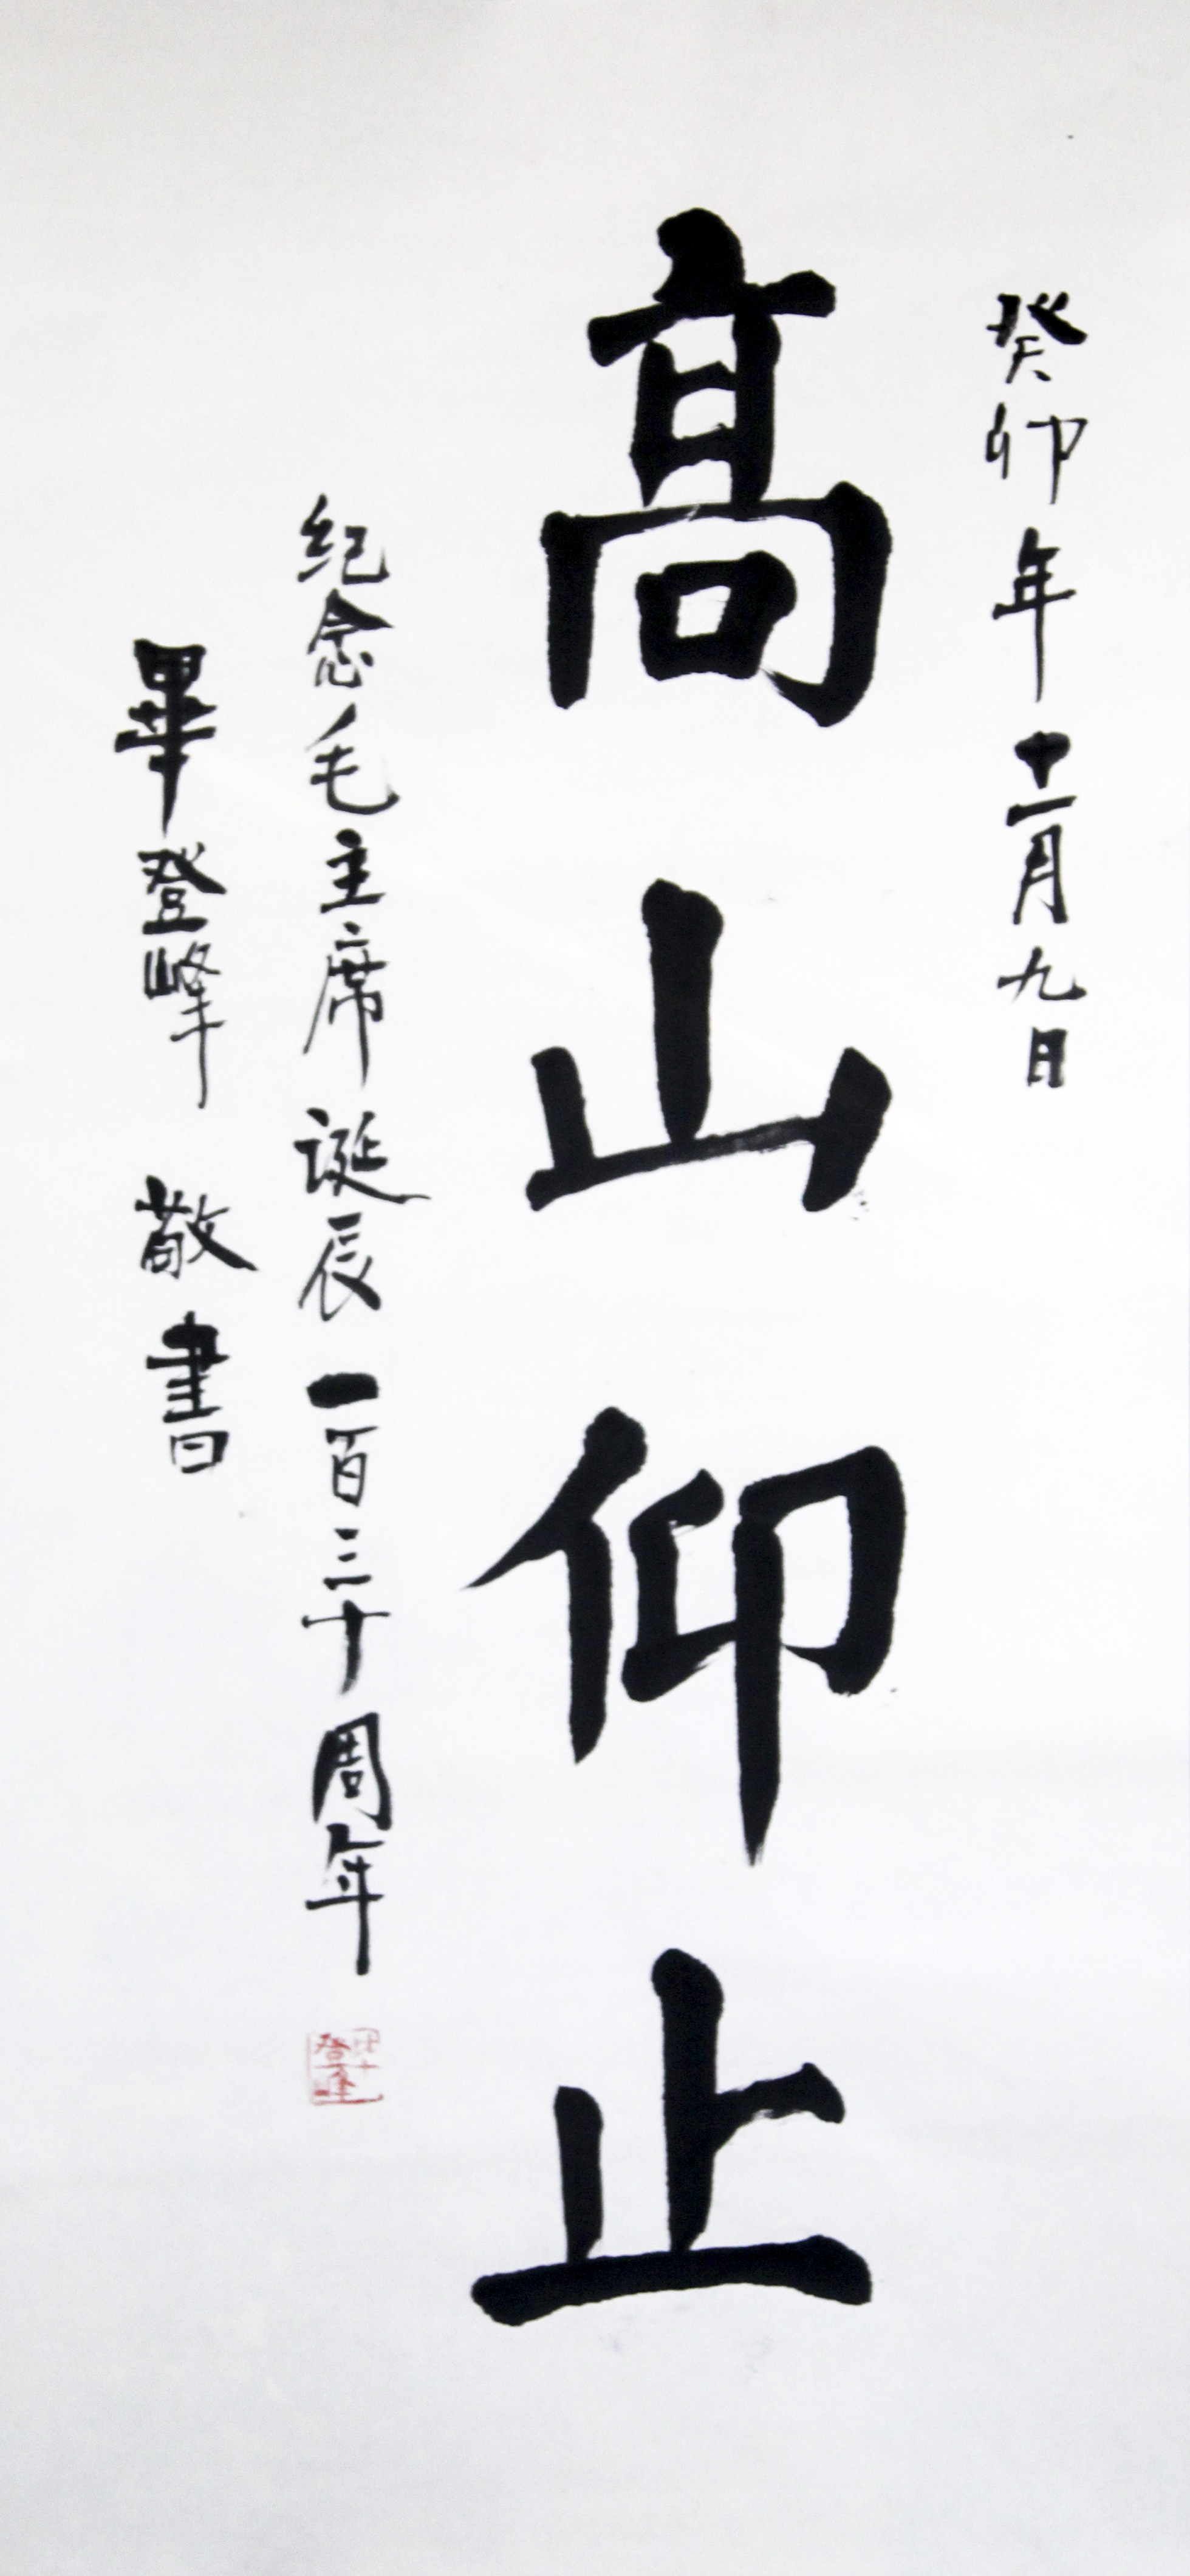 癸卯年十一月九日
髙山仰止
纪念毛主席誕辰一百三十周年
畢登峰 敬書
畢登峰